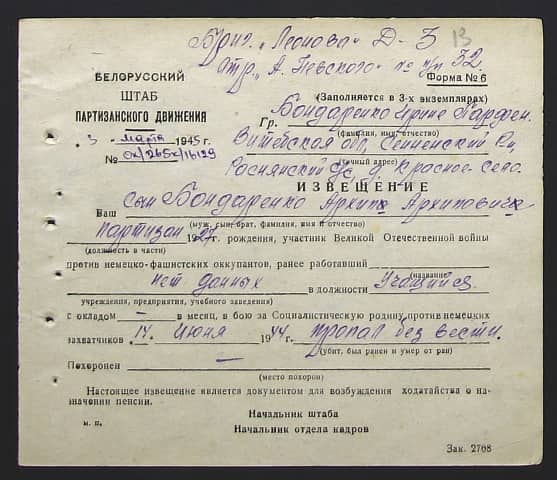 Бриг. „Леонова" Д-3 13
Отр. „А. Невского" по п/п 32.
БЕЛОРУССКИЙ
ШТАБ
ПАРТИЗАНСКОГО ДВИЖЕНИЯ
3 марта 1945 г.
№ 0х/265х/16129
Форма № 6
(Заполняется в 3-х экземплярах)
Гр. Бондаренко Ирине Парфен.
(фамилия, имя, отчество)
Витебская обл, Сенненский р-н,
(точный адрес)
Роснянский с/с, д. Красное-Село.
ИЗВЕЩЕНИЕ
Ваш сын Бондаренко Архип Архипович
(муж, сын, брат, фамилия, имя и отчество)
партизан 1927 г. рождения, участник Великой Отечественной войны
(должность в части)
против немецко-фашистских оккупантов, ранее работавший
(название)
нет данных в должности Учащийся.
учреждения, предприятия, учебного заведения)
с окладом — в месяц, в бою за Социалистическую родину против немецких
захватчиков „14" июня 1944 г. пропал без вести.
(убит, был ранен и умер от ран)
Похоронен —
(место похорон)
Настоящее извещение является документом для возбуждения ходатайства о на-
значении пенсии.
Начальник штаба
м. п.
Начальник отдела кадров
Зак. 2768